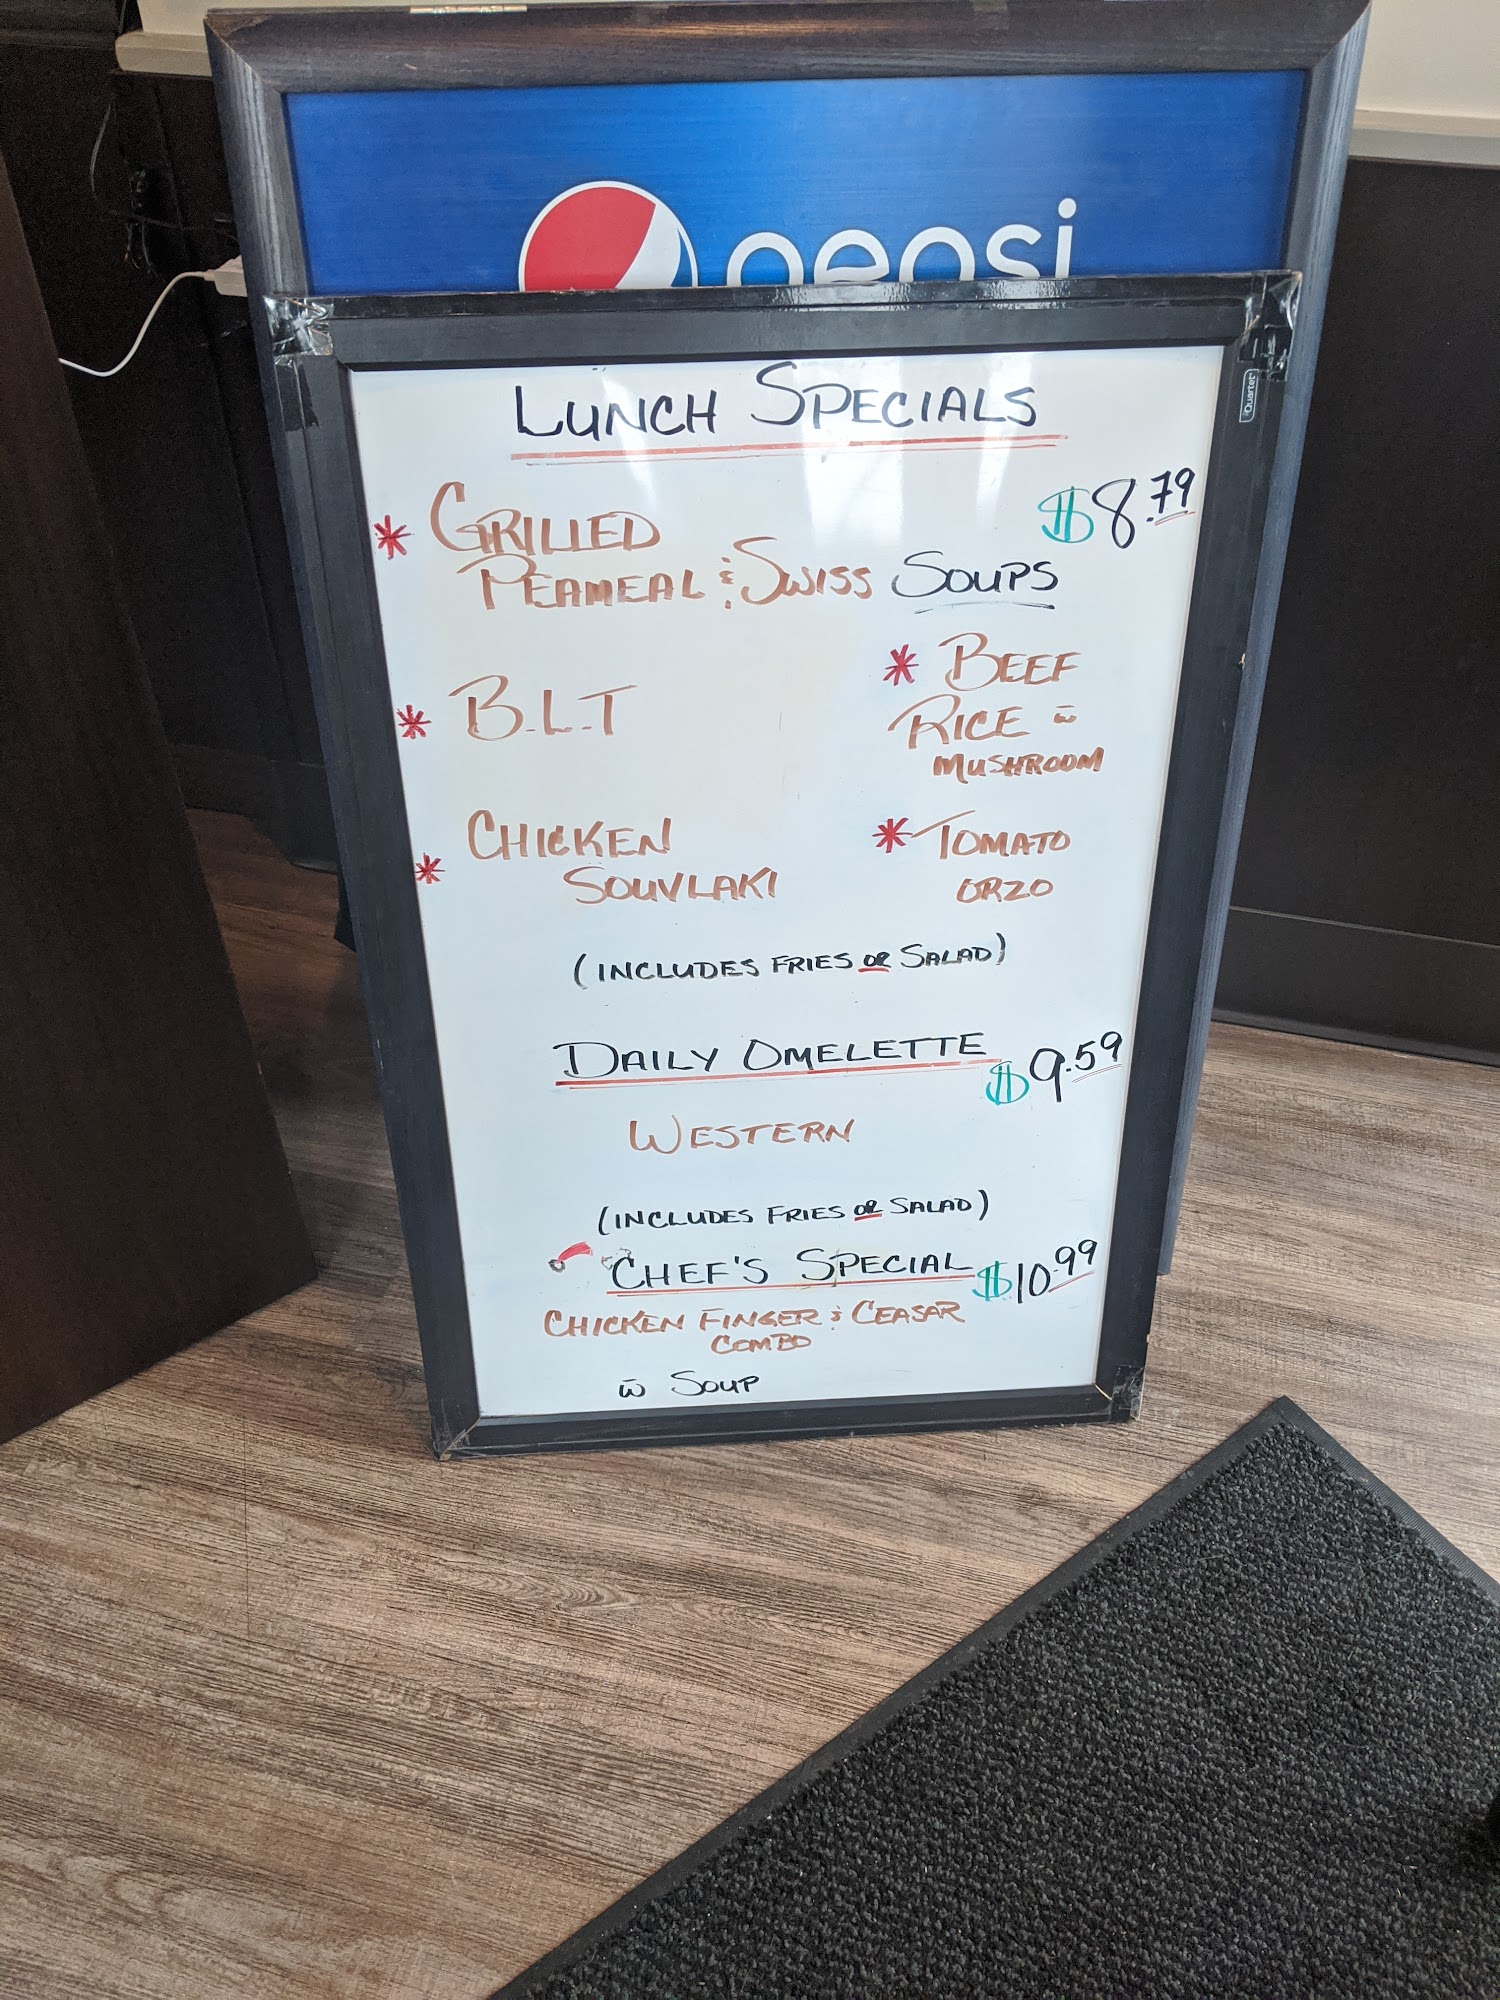 pepsi
Quartet
LUNCH SPECIALS
$8.79
* GRILLED
PEAMEAL & SWISS
* B.L.T
* CHICKEN
SOUVLAKI
SOUPS
* BEEF
RICE w̄
MUSHROOM
* TOMATO
ORZO
(INCLUDES FRIES OR SALAD)
DAILY OMELETTE $9.59
WESTERN
(INCLUDES FRIES OR SALAD)
CHEF'S SPECIAL $10.99
CHICKEN FINGER & CEASAR
COMBO
w̄ SOUP